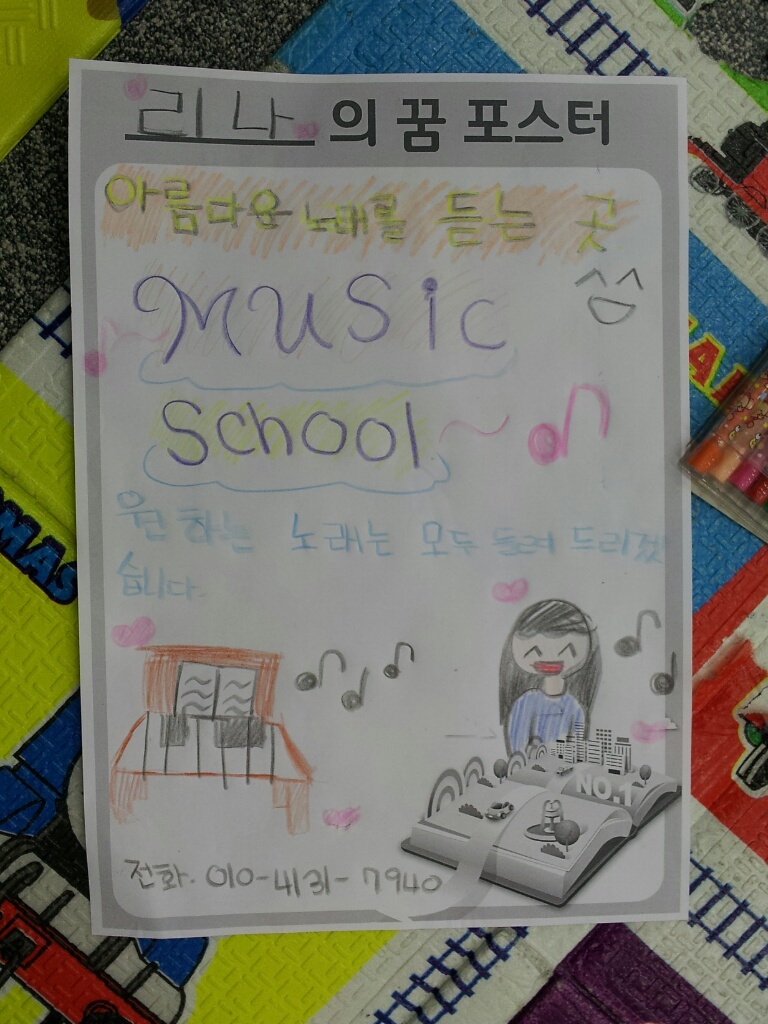 리나의 꿈 포스터
아름다운 노래를 듣는 곳
MUSic
School
원하는 노래는 모두 들려 드리겠
습니다.
NO.1
전화. 010-4131-7940
OMAS